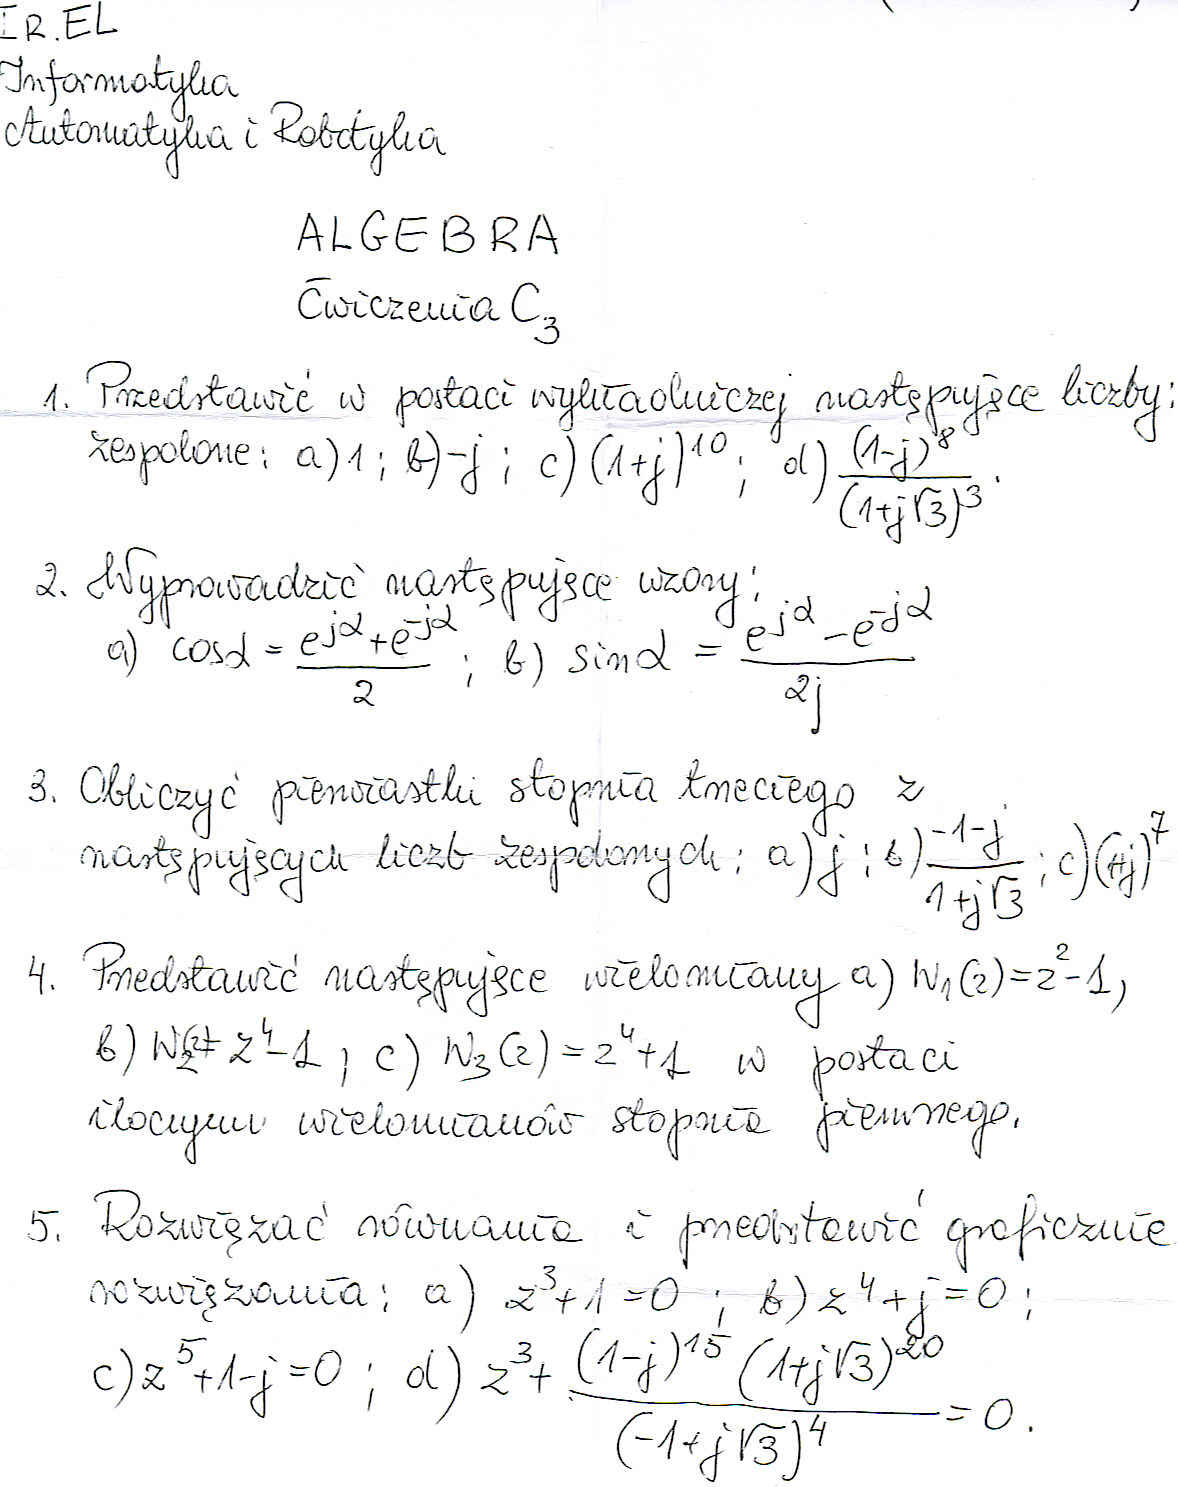 I R. EL
Informatyka
Automatyka i Robotyka
ALGEBRA
Ćwiczenia C₃
1. Przedstawić w postaci wykładniczej następujące liczby:
zespolone: a) 1 ; b) -j ; c) (1+j)¹⁰ ; d) (1-j)⁸ / (1+j√3)³ .
2. Wyprowadzić następujące wzory:
a) cosα = (e^{jα} + e^{-jα}) / 2 ; b) sinα = (e^{jα} - e^{-jα}) / 2j
3. Obliczyć pierwiastki stopnia trzeciego z
następujących liczb zespolonych: a) j ; b) (-1-j) / (1+j√3) ; c) (1+j)⁷
4. Przedstawić następujące wielomiany a) W₁(z) = z² - 1,
b) W₂(z) = z⁴ - 1 , c) W₃(z) = z⁴ + 1 w postaci
iloczynu wielomianów stopnia pierwszego.
5. Rozwiązać równania i przedstawić graficznie
rozwiązania: a) z³ + 1 = 0 ; b) z⁴ + j = 0 ;
c) z⁵ + 1 - j = 0 ; d) z³ + (1-j)¹⁵ (1+j√3)²⁰ / (-1+j√3)⁴ = 0 .